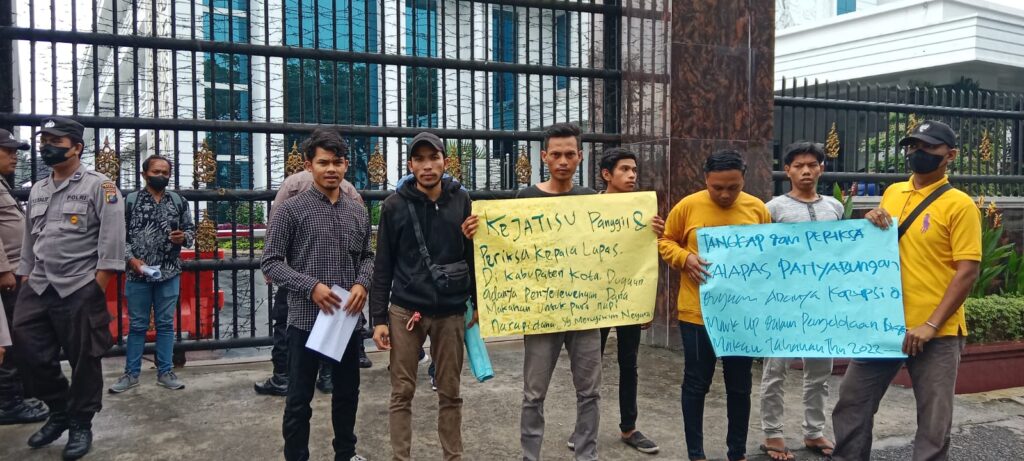 KEJATISU Panggil &
Periksa Kepala Lapas.
Di Kabupaten Kota Dugaan
adanya Penyelewengan Dana
Makanan Untuk Para napi
narapidana yg Merugikan Negara
TANGKAP dan PERIKSA
KALAPAS PANYABUNGAN
Dugaan Adanya Korupsi &
Mark Up dalam Pengelolaan
Makan Tahanan Thn 2022
POLRI